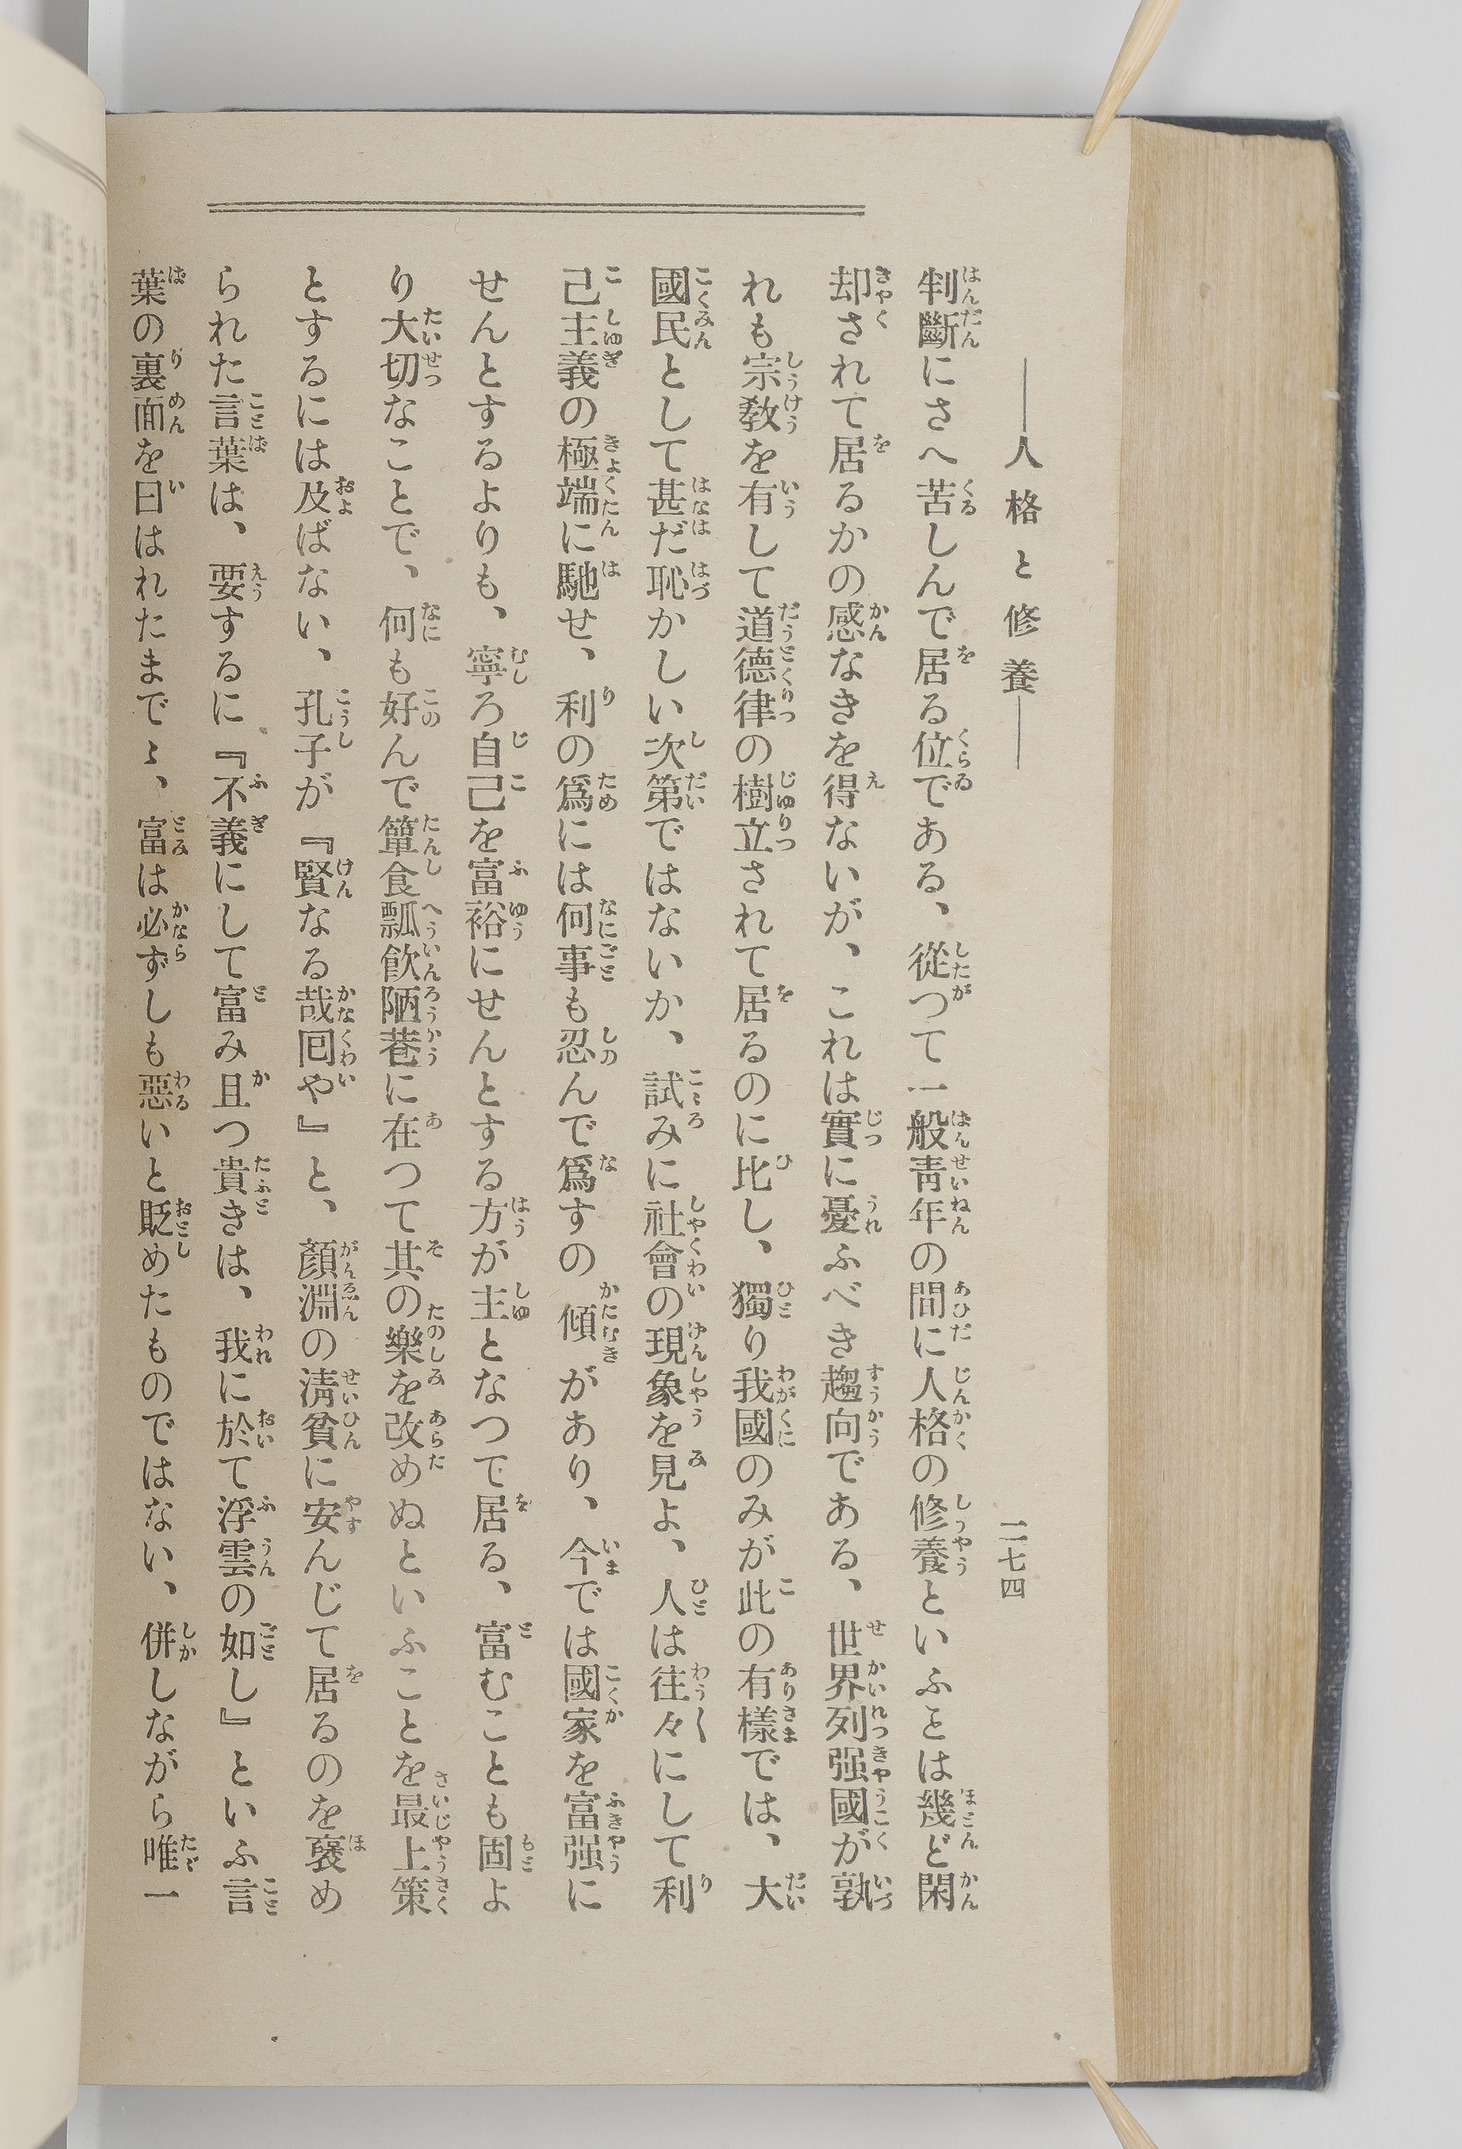 ――人格と修養――
二七四
判斷にさへ苦しんで居る位である、從つて一般青年の間に人格の修養といふことは幾ど閑
却されて居るかの感なきを得ないが、これは實に憂ふべき趨向である、世界列强國が孰
れも宗教を有して道德律の樹立されて居るのに比し、獨り我國のみが此の有樣では、大
國民として甚だ恥かしい次第ではないか、試みに社會の現象を見よ、人は往々にして利
己主義の極端に馳せ、利の爲には何事も忍んで爲すの傾があり、今では國家を富强に
せんとするよりも、寧ろ自己を富裕にせんとする方が主となつて居る、富むことも固よ
り大切なことで、何も好んで簞食瓢飮陋巷に在つて其の樂を改めぬといふことを最上策
とするには及ばない、孔子が『賢なる哉回や』と、顏淵の淸貧に安んじて居るのを褒め
られた言葉は、要するに『不義にして富み且つ貴きは、我に於て浮雲の如し』といふ言
葉の裏面を曰はれたまでゞ、富は必ずしも惡いと貶めたものではない、併しながら唯一